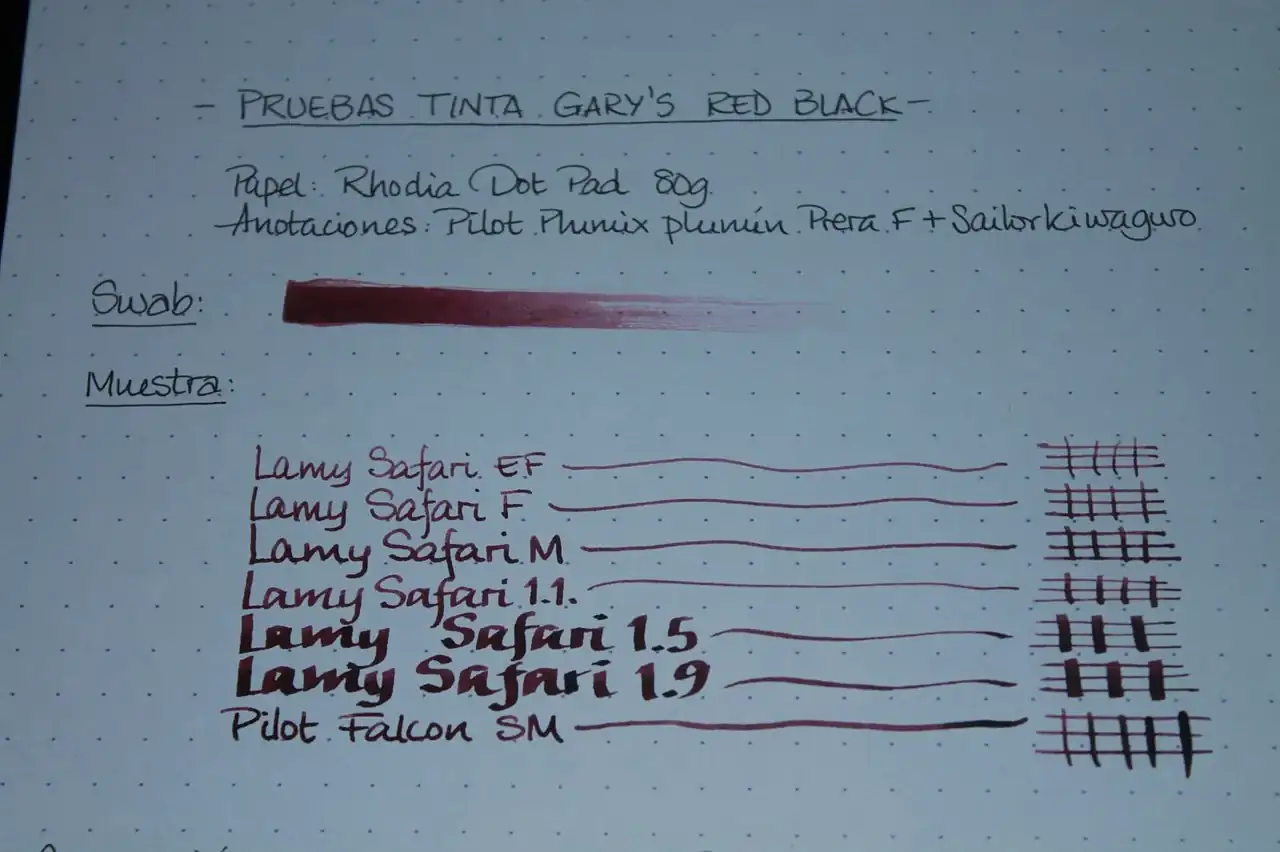 - PRUEBAS TINTA GARY'S RED BLACK -
Papel: Rhodia Dot Pad 80g.
Anotaciones: Pilot Plumix plumín Prera F + Sailor kiwaguro
Swab:
Muestra:
Lamy Safari EF
Lamy Safari F
Lamy Safari M
Lamy Safari 1.1.
Lamy Safari 1.5
Lamy Safari 1.9
Pilot Falcon SM